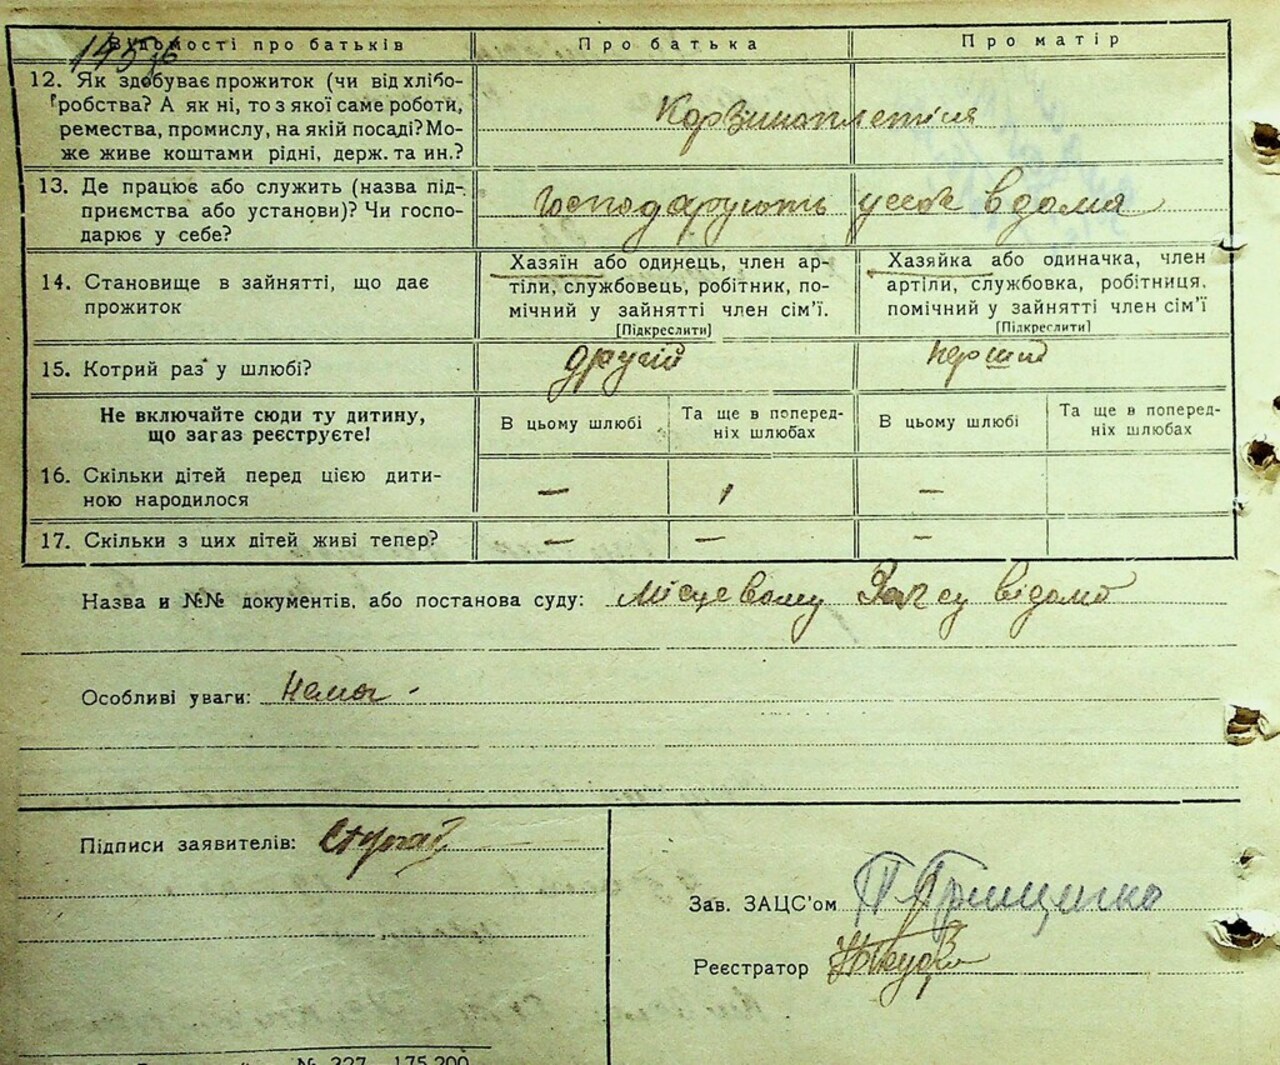 145 зв
Відомості про батьків
Про батька
Про матір
12. Як здобуває прожиток (чи від хлібо-
робства? А як ні, то з якої саме роботи,
ремества, промислу, на якій посаді? Мо-
же живе коштами рідні, держ. та ин.?
Корзиноплетіня
13. Де працює або служить (назва під-
приємства або установи)? Чи госпо-
дарює у себе?
Господарують усебе вдома
14. Становище в зайнятті, що дає
прожиток
Хазяїн або одинець, член ар-
тіли, службовець, робітник, по-
мічний у зайнятті член сім'ї.
[Підкреслити]
Хазяйка або одиначка, член
артіли, службовка, робітниця,
помічний у зайнятті член сім'ї
[Підкреслити]
15. Котрий раз у шлюбі?
другій
перший
Не включайте сюди ту дитину,
що загаз реєструєте!
В цьому шлюбі
Та ще в поперед-
ніх шлюбах
В цьому шлюбі
Та ще в поперед-
ніх шлюбах
16. Скільки дітей перед цією дити-
ною народилося
–
1
–
17. Скільки з цих дітей живі тепер?
–
–
–
Назва и №№ документів, або постанова суду: місцевому Загсу відомо
Особливі уваги: Немає -
Підписи заявителів:
Зав. ЗАЦС'ом Грищенко
Реєстратор
№ 327 175.200